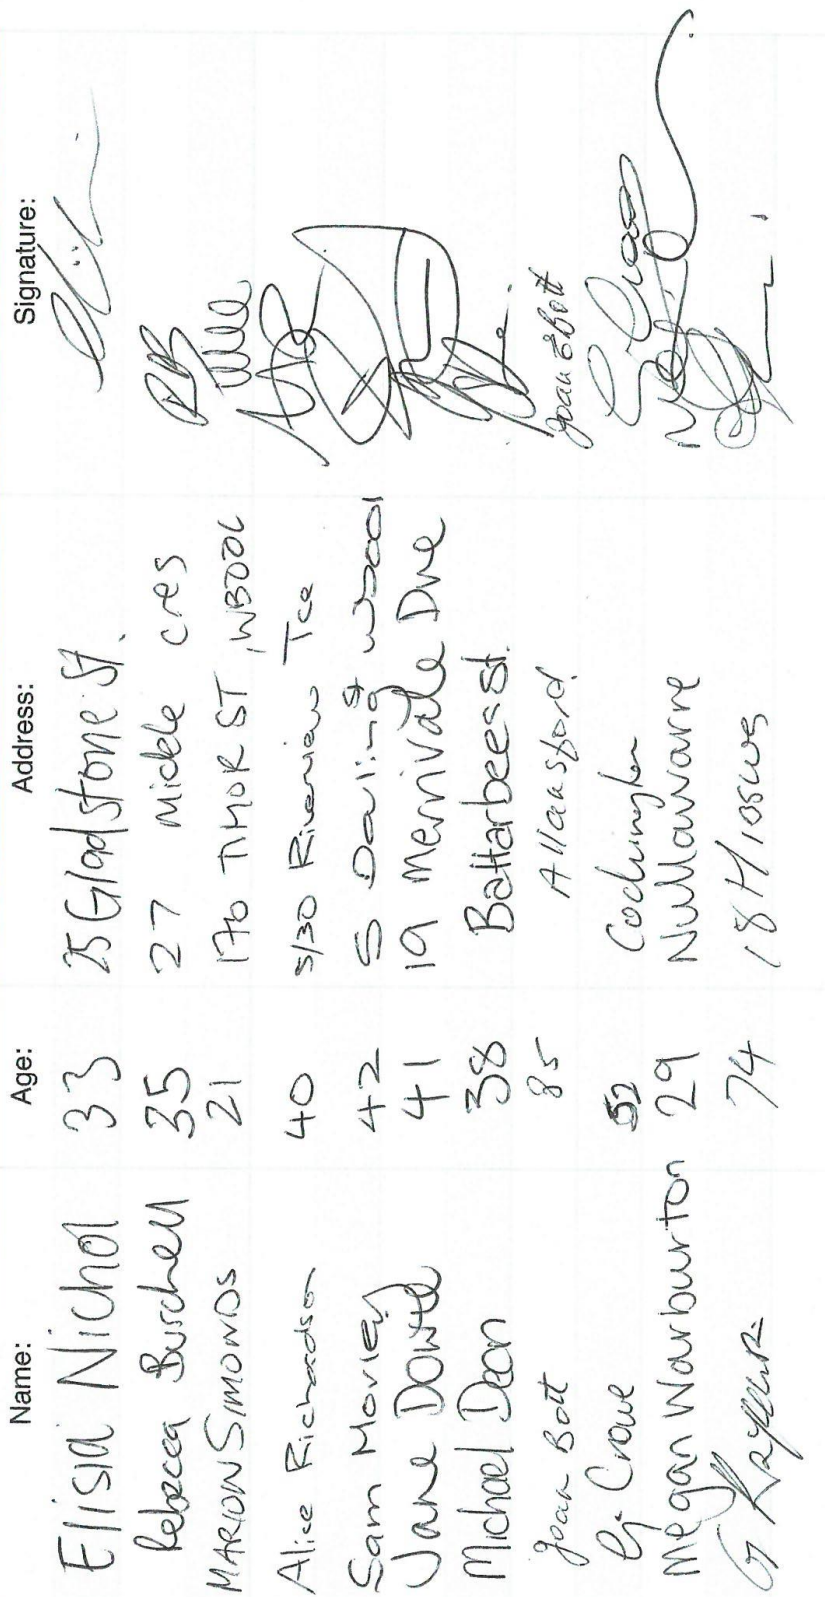 Name: Age: Address: Signature:
Elisia Nichol 33 25 Gladstone St.
Rebecca Burchell 35 27 Middle cres RB
MARION SIMONDS 21 176 TIMOR ST, W'BOOL
Alice Richardson 40 3/30 Riverview Tce
Sam Morley 42 5 Darling St W'Bool
Jane Dowd 41 19 Merrivale Dve
Michael Dean 38 Battarbees St.
Joan Bott 85 Allansford. Joan E Bott
G. Crowe 52
Megan Warburton 29 Nullawarre
G 74 18